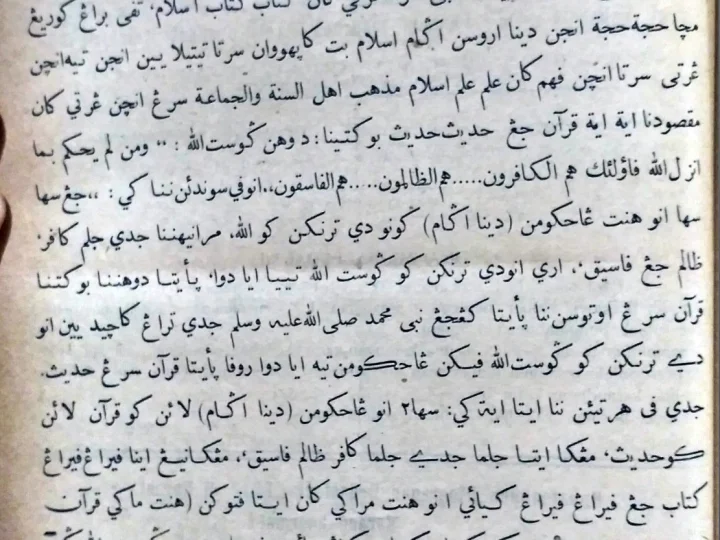 مچا حجة حجة انجن دينا اروسن اݢام اسلام بت كاڤهووان سرتا تيتيلا يين انجن تيه انجن
ڠرتي سرتا انچن فهم كان علم علم اسلام مذهب اهل السنة والجماعة سرڠ انچن ڠرتي كان
مقصودنا اية اية قرآن جڠ حديث حديث بوكتينا: دوهن ݢوست الله : ,, ومن لم يحكم بما
انزل الله فاؤلئك هم الكافرون.....هم الظالمون.....هم الفاسقون,,. انوفي سوندئن ننا كي : ,,جڠ سها
سها انو هنت ڠاحكومن (دينا اݢام) كونو دي ترنكن كو الله، مرانيهننا جدي جلم كافر،
ظالم جڠ فاسيق،، اري انودي ترنكن كو ݢوست الله تيبيا ايا دوا، ڤأيتا دوهننا بوكتنا
قرآن سرڠ اوتوسن ننا ڤأيتا كڠجڠ نبي محمد صلى الله عليه وسلم جدي تراڠ كاچيد يين انو
دي ترنكن كو ݢوست الله فيكن ڠاحكومن تيه ايا دوا روفا ڤأيتا قرآن سرڠ حديث.
جدي في هرتيئن ننا ايتا اية كي: سها٢ انو ڠاحكومن (دينا اݢام) لائن كو قرآن لائن
كو حديث، مڠكا ايتا جلما جدي جلما كافر ظالم فاسيق،، مڠكانيڠ اينا فيراڠ فيراڠ
كتاب جڠ فيراڠ فيراڠ كيائي انو هنت مراكي كان ايتا فتوكن (هنت ماكي قرآن